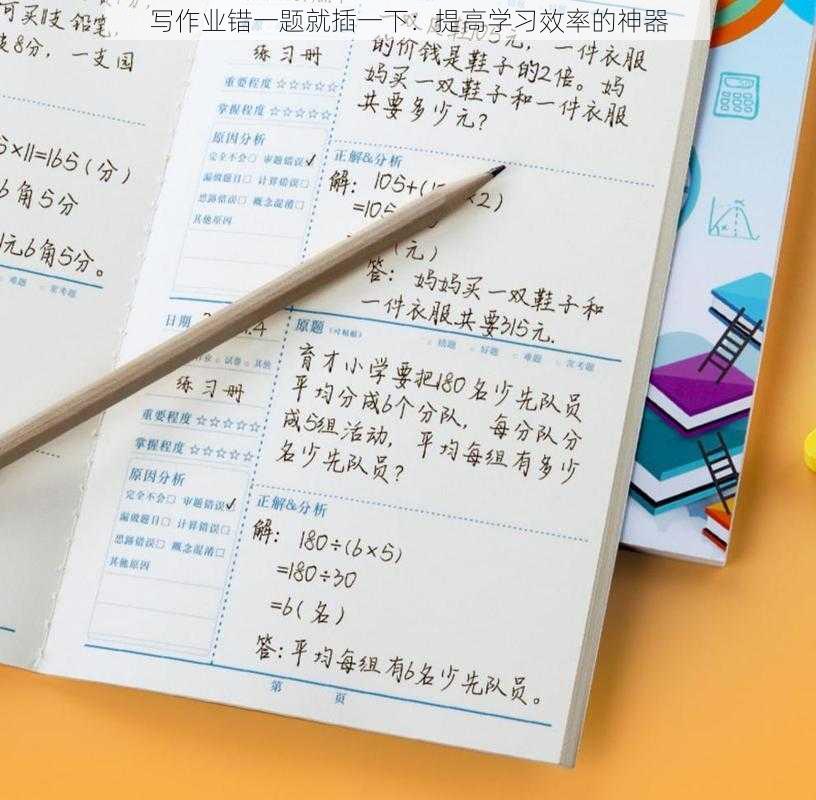 写作业错一题就插一下：提高学习效率的神器
可买11支铅笔，
8分，一支园
5×11=165(分)
6角5分
1元6角5分。
难题 常考题
练习册
重要程度☆☆☆☆☆
掌握程度☆☆☆☆☆
原因分析
完全不会□ 审题错误✓
漏做题目□ 计算错误□
思路错误□ 概念混淆□
其他原因
105元，一件衣服
的价钱是鞋子的2倍。妈
妈买一双鞋子和一件衣服
共要多少元？
正解&分析
解：105+(1 ×2)
=105
(元)
答：妈妈买一双鞋子和
一件衣服共要315元.
日期
试卷 其他
练习册
重要程度☆☆☆☆☆
掌握程度☆☆☆☆☆
原因分析
完全不会□ 审题错误✓
漏做题目□ 计算错误□
思路错误□ 概念混淆□
其他原因
原题 错题 好题 难题 常考题
育才小学要把180名少先队员
平均分成6个分队，每分队分
成5组活动，平均每组有多少
名少先队员？
正解&分析
解：180÷(6×5)
=180÷30
=6(名)
答：平均每组有6名少先队员。
第 页